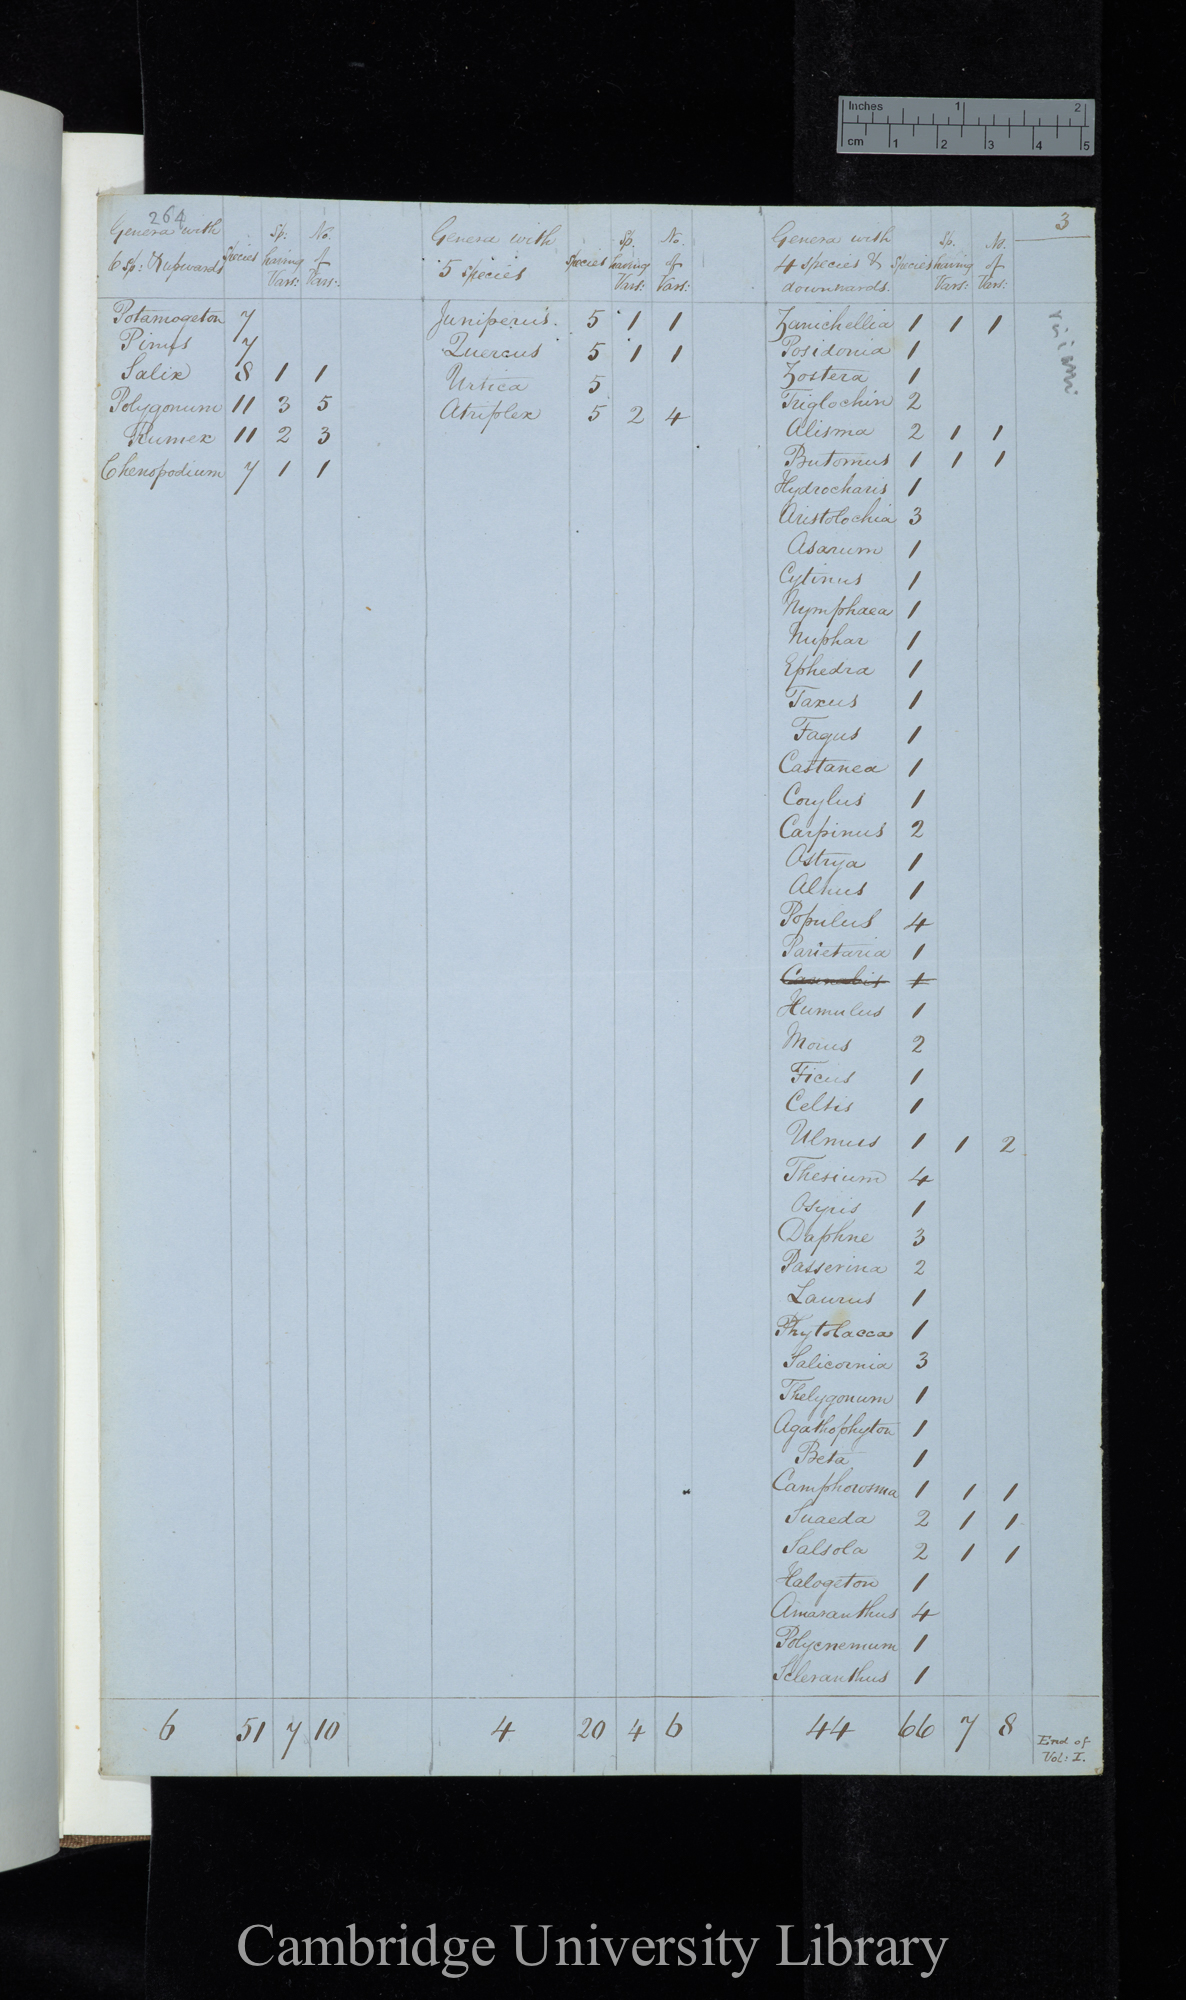 Inches 1 2
cm 1 2 3 4 5
264
3
Genera with 6 sp: & upwards Species Sp. having Vars: No. of Vars:
Genera with 5 species Species Sp. having Vars: No. of Vars:
Genera with 4 species & downwards. Species Sp. having Vars: No. of Vars:
Potamogeton 7
Pinus 7
Salix 8 1 1
Polygonum 11 3 5
Rumex 11 2 3
Chenopodium 7 1 1
Juniperus. 5 1 1
Quercus 5 1 1
Urtica 5
Atriplex 5 2 4
Zanichellia 1 1 1
Posidonia 1
Zostera 1
Triglochin 2
Alisma 2 1 1
Butomus 1 1 1
Hydrocharis 1
Aristolochia 3
Asarum 1
Cytinus 1
Nymphaea 1
Nuphar 1
Ephedra 1
Taxus 1
Fagus 1
Castanea 1
Corylus 1
Carpinus 2
Ostrya 1
Alnus 1
Populus 4
Parietaria 1
Cannabis 1
Humulus 1
Morus 2
Ficus 1
Celtis 1
Ulmus 1 1 2
Thesium 4
Osyris 1
Daphne 3
Passerina 2
Laurus 1
Phytolacca 1
Salicornia 3
Thelygonum 1
Agathophyton 1
Beta 1
Camphorosma 1 1 1
Suaeda 2 1 1
Salsola 2 1 1
Halogeton 1
Amaranthus 4
Polycnemum 1
Scleranthus 1
6 51 7 10
4 20 4 6
44 66 7 8
End of
Vol: I.
Cambridge University Library